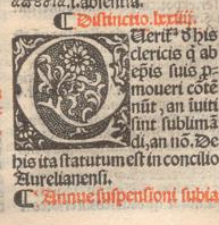 ¶ Distinctio.lxxiiij.
Uerit̃ d̾ his
clericis q̃ ab
ep̃is suis ꝓ
moueri cõtẽ
nũt, an ĩuiti
sint sublimã
di, an nõ. De
his ita statutum est in concilio
Aurelianensi.
¶ Annue suspensioni subia